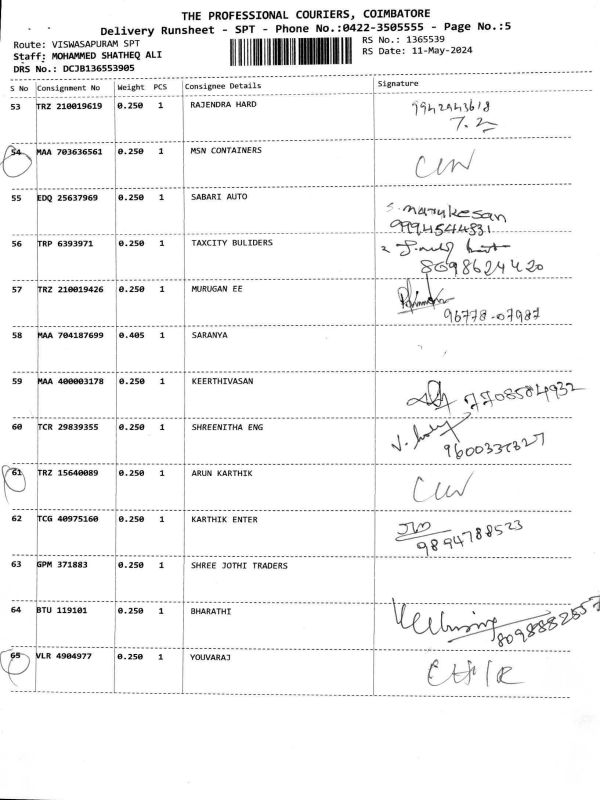 THE PROFESSIONAL COURIERS, COIMBATORE
Delivery Runsheet - SPT - Phone No.:0422-3505555 - Page No.:5
Route: VISWASAPURAM SPT
RS No.: 1365539
Staff: MOHAMMED SHATHEQ ALI
RS Date: 11-May-2024
DRS No.: DCJB136553905
S No Consignment No Weight PCS Consignee Details Signature
53 TRZ 210019619 0.250 1 RAJENDRA HARD 9942943618
54 MAA 703636561 0.250 1 MSN CONTAINERS
55 EDQ 25637969 0.250 1 SABARI AUTO S. Murukesan
9994544831
56 TRP 6393971 0.250 1 TAXCITY BULIDERS
8098624420
57 TRZ 210019426 0.250 1 MURUGAN EE
96778-07987
58 MAA 704187699 0.405 1 SARANYA
59 MAA 400003178 0.250 1 KEERTHIVASAN 7708584932
60 TCR 29839355 0.250 1 SHREENITHA ENG
61 TRZ 15640089 0.250 1 ARUN KARTHIK
62 TCG 40975160 0.250 1 KARTHIK ENTER
9894788523
63 GPM 371883 0.250 1 SHREE JOTHI TRADERS
64 BTU 119101 0.250 1 BHARATHI
8098882557
65 VLR 4904977 0.250 1 YOUVARAJ